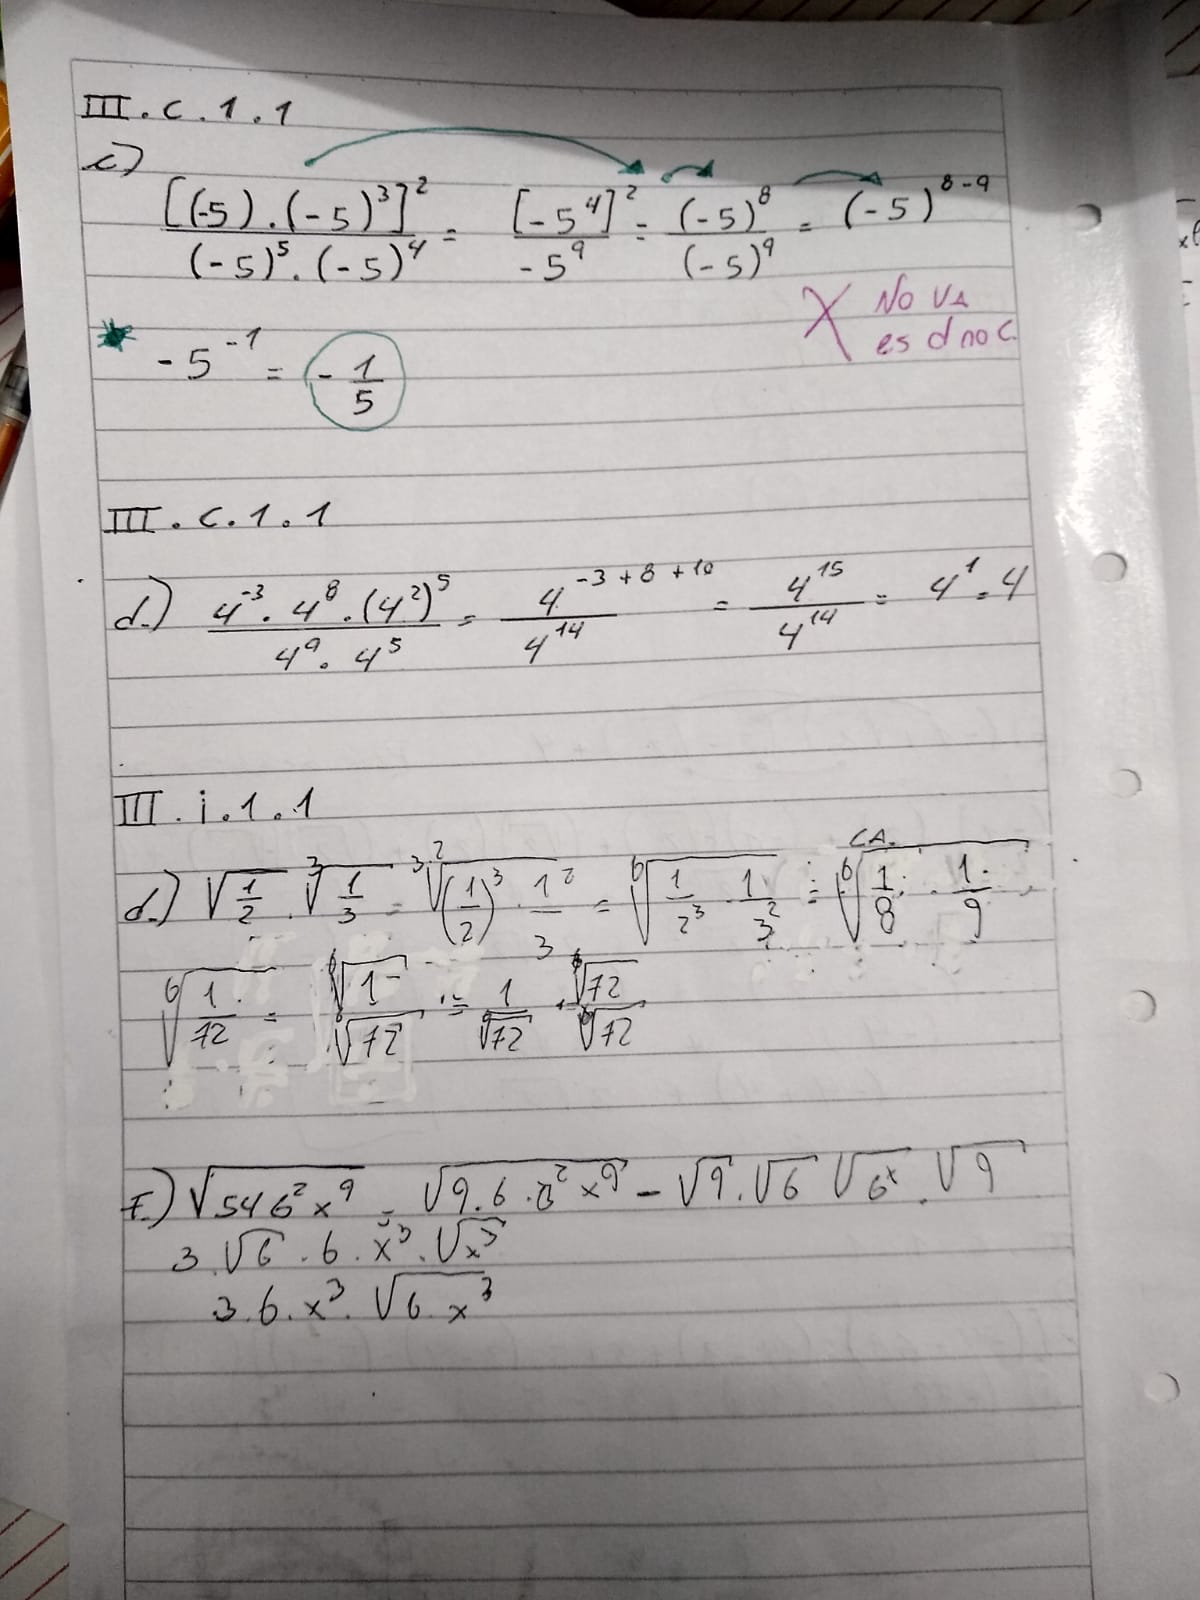 III.c.1.1
c) [(-5).(-5)³]² / (-5)⁵.(-5)⁴ = [-5⁴]² / -5⁹ = (-5)⁸ / (-5)⁹ = (-5)⁸⁻⁹
X No VA
es d no C.
* -5⁻¹ = - 1/5
III.c.1.1
d.) 4⁻³.4⁸.(4²)⁵ / 4⁹.4⁵ = 4⁻³⁺⁸⁺¹⁰ / 4¹⁴ = 4¹⁵ / 4¹⁴ = 4¹ = 4
III.i.1.1
CA.
d.) √(1/2) . ³√(1/3) = ³·²√((1/2)³ . 1²/3) = ⁶√(1/2³ . 1/3²) = ⁶√(1/8 . 1/9)
⁶√(1/72) = ⁶√1 / ⁶√72 = 1/⁶√72 . ⁶√72 / ⁶√72
F.) √(546²x⁹) = √(9.6.6²x⁹) = √9.√6 √6ˣ.√9
3.√6.6.x³.√x³
3.6.x³.√(6.x³)